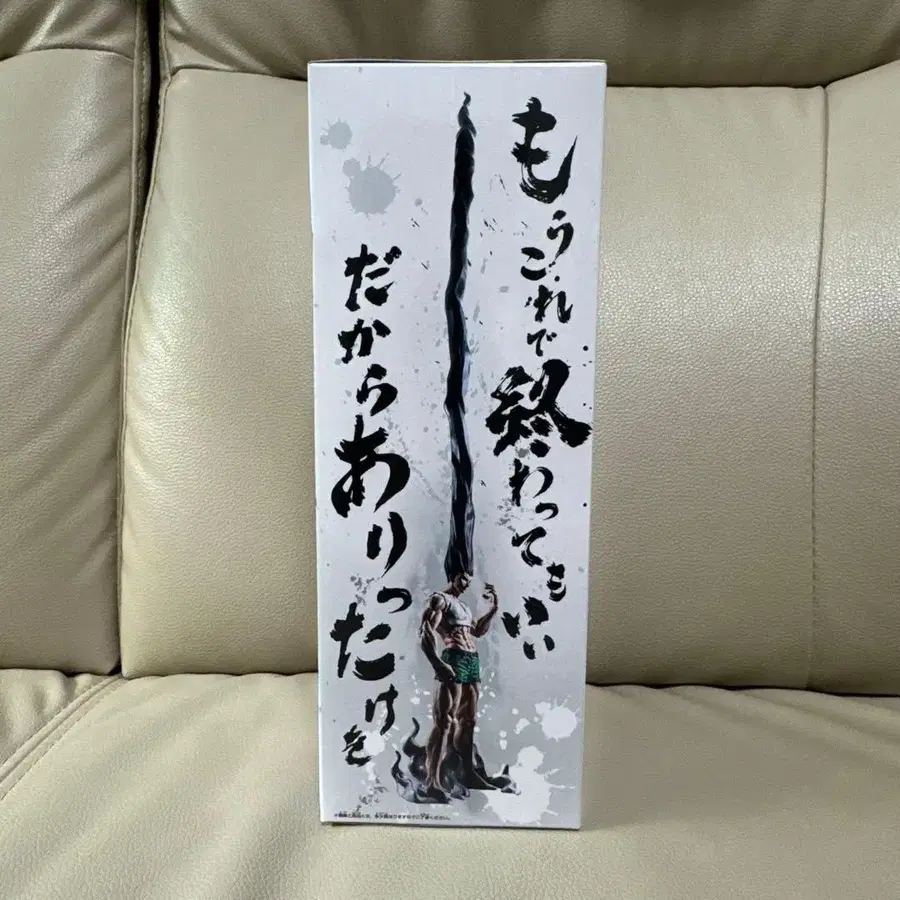 もうこれで終わってもいい
だからありったけを